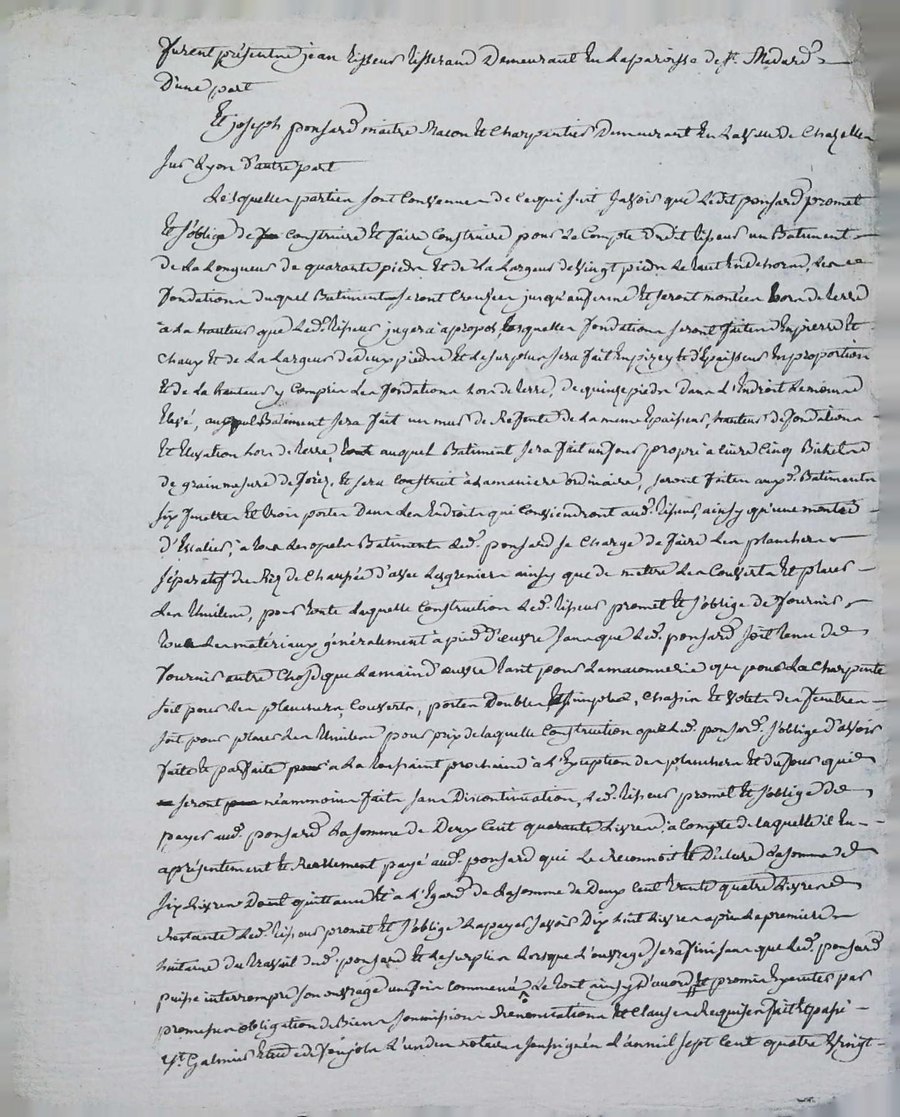 furent présents jean Tisseur Tisserand Demeurant En la paroisse de St. Medard
D'une part
Et joseph ponsard maitre Macon Et Charpentier Demeurant En La ville de Chazelle
sur Lyon d'autre part
Lesquelles parties sont Convenues de ce qui suit savoir que Ledit ponsard promet
Et s'oblige de Construire Et faire Construire pour Le Compte Dudit Tisseur un Batiment
de La Longueur de quarante pieds Et de La Largeur de vingt pieds Le tout En dehors, Les
fondations duquel Batiment seront Creusées jusqu'au ferme Et seront montées hors de terre
a La hauteur que Led. Tisseur jugera a propos, Lesquelles fondations seront faites En pierre Et
Chaux Et de La Largeur de deux pieds Et Le surplus sera fait En pizey Et d'Epaisseur En proportion
Et de La hauteur y Compris Les fondations hors de terre, de quinze pieds Dans L'Endroit Le moins
Elevé, auquel Batiment sera fait un mur de Refente de La meme Epaisseur, hauteur de fondations
Et Elevation hors de terre, auquel Batiment sera fait un four propre a Cuire Cinq Bichets
de grain mesure de forez, Et sera Construit a La maniere ordinaire, seront faites auxd. Batiments
six fenetres Et trois portes Dans Les Endroits qui Conviendront aud. Tisseur, ainsy qu'une montée
d'Escalier, a tous Lesquels Batiments Led. ponsard se Charge de faire Les planchers
séparatifs du Rez de Chaussée d'avec Les greniers ainsy que de mettre Les Couverts Et placer
Les thuiles, pour toute Laquelle Construction Led. Tisseur promet Et s'oblige de fournir
tous Les matériaux généralement a pied d'œuvre sans que Led. ponsard soit tenu de
fournir autre Chose que La main d'œuvre tant pour La maconnerie que pour La Charpente
soit pour Les planchers, Couverts, portes Doubles Et simples, Chassis Et volets des fenetres
soit pour placer Les thuiles pour prix de laquelle Construction que Led. ponsard s'oblige d'avoir
faite Et parfaite a La toussaint prochaine a L'Exception des planchers Et du four qui
seront néammoins faits sans Discontinuation, Led. Tisseur promet Et s'oblige de
payer aud. ponsard La somme de Deux Cent quarante Livres, a Compte de laquelle il En
a présentement Et Réellement payé aud. ponsard qui Le Reconnoit Et Déclare La somme de
six Livres Dont quittance Et a L'Egard de La somme de Deux Cent trente quatre Livres
Restante Led. Tisseur promet Et s'oblige La payer savoir Dix huit Livres apres La premiere
huitaine du travail dud. ponsard Et Le surplus Lorsque L'ouvrage sera fini sans que Led. ponsard
puisse interrompre son ouvrage une fois commencé Le tout ainsy d'accord Et promis Executer par
promesse obligation de Biens soumissions Renonciations Et Clauses Requises fait Et passé
a St. Galmier Etude de L'un des notaires soussignés L'an mil sept Cent quatre Vingt